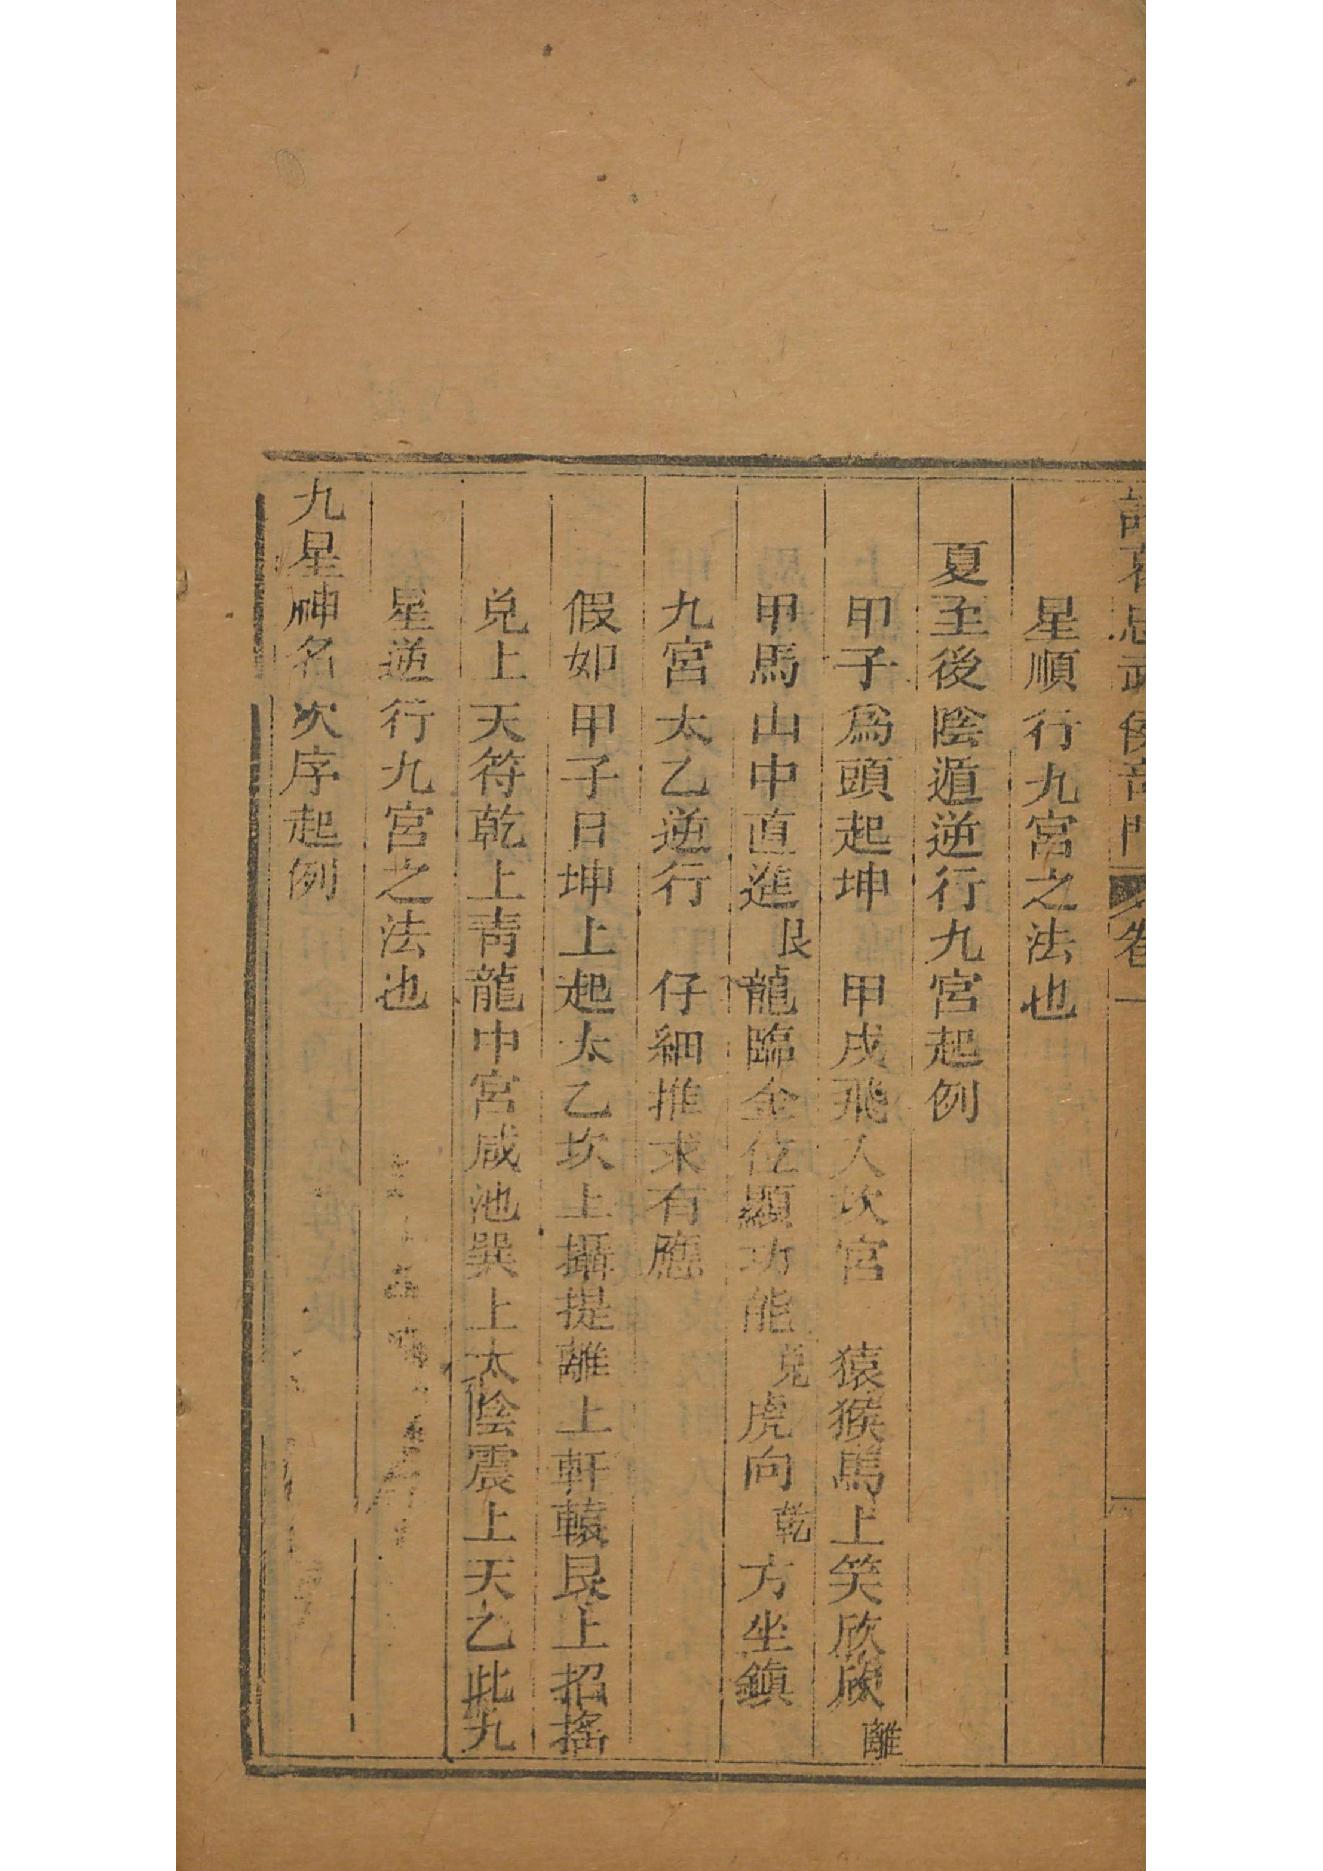 卷一
星順行九宮之法也
夏至後陰遁逆行九宮起例
甲子爲頭起坤 甲戌飛入坎宮 猿猴馬上笑欣欣離
甲馬山中直進艮龍臨金位顯功能兌虎向乾方坐鎮
九宮太乙逆行 仔細推求有應
假如甲子日坤上起太乙坎上攝提離上軒轅艮上招搖
兌上天符乾上青龍中宮咸池巽上太陰震上天乙此九
星逆行九宮之法也
九星神名次序起例